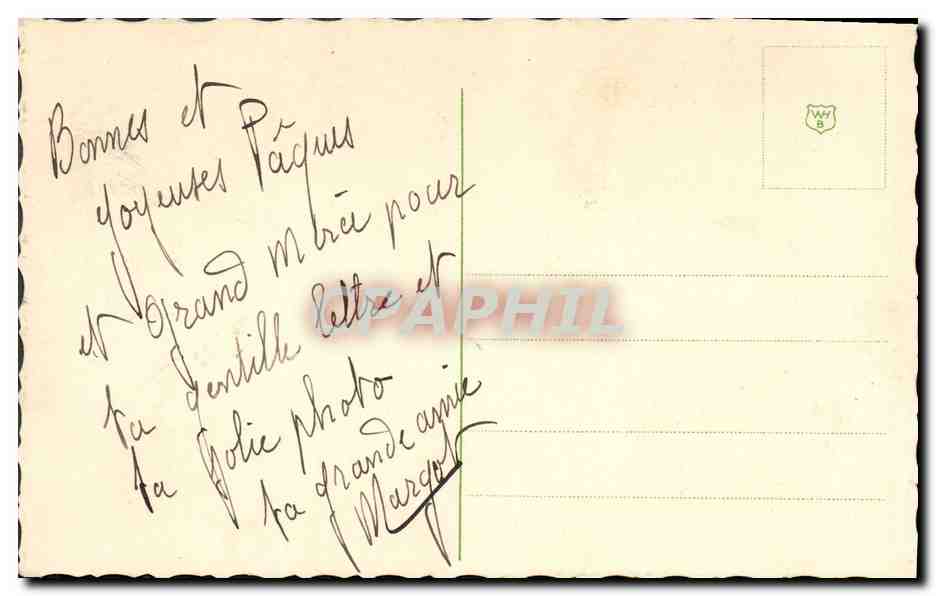 Bonnes et
joyeuses Pâques
et grand merci pour
ta gentille lettre et
ta jolie photo
ta grande amie
Margot
WH
B
CPAPHIL